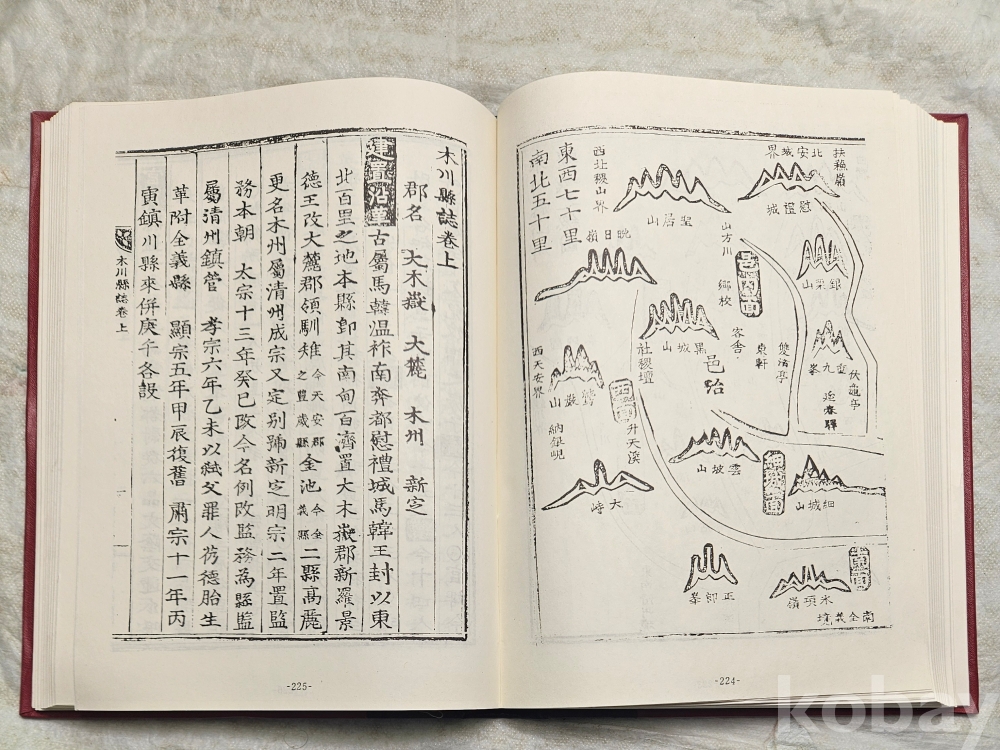 扶蘓嶺
北安城界
慰禮城
聖居山
西北稷山界
東西七十里
南北五十里
晩日嶺
銀梁山
山方川
鄉校
邑內面
客舍
東軒
雙清亭
重九峯
伏龜亭
延春驛
黑城山
社稷壇
邑號
西天安界
鷲巖山
納銀峴
西面
升天溪
雲坡山
細城山
大峙
正卽峯
木頂嶺
南全義境
-224-
木川縣誌卷上
郡名 大木嶽 大麓 木州 新定
建置沿革古屬馬韓温祚南奔都慰禮城馬韓王封以東
北百里之地本縣卽其南甸百濟置大木嶽郡新羅景
德王改大麓郡領馴雉今天安郡之豊歲縣金池今全義縣二縣高麗
更名木州屬清州成宗又定别號新定明宗二年置監
務本朝 太宗十三年癸巳改今名例改監務為縣監
屬清州鎮管 孝宗六年乙未以弑父罪人芿德胎生
革附全義縣 顯宗五年甲辰復舊 肅宗十一年丙
寅鎮川縣來併庚午各設
木川縣誌卷上
一
-225-
kobay